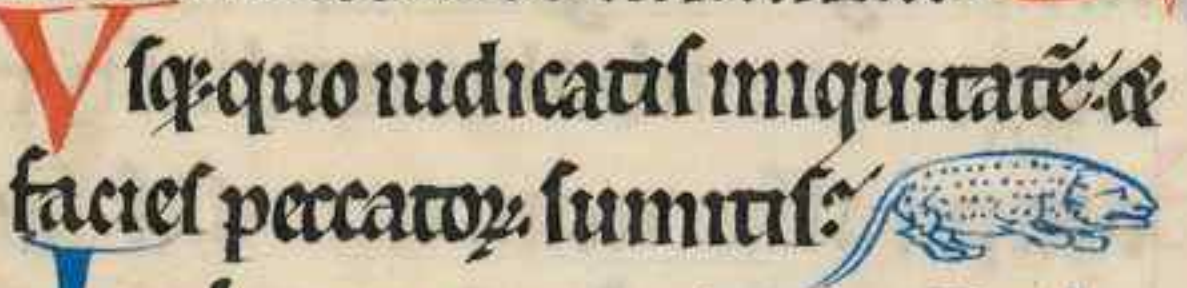 Vſqꝫ quo iudicatiſ iniquitatē: &
facieſ peccatoꝝ ſumitiſ: